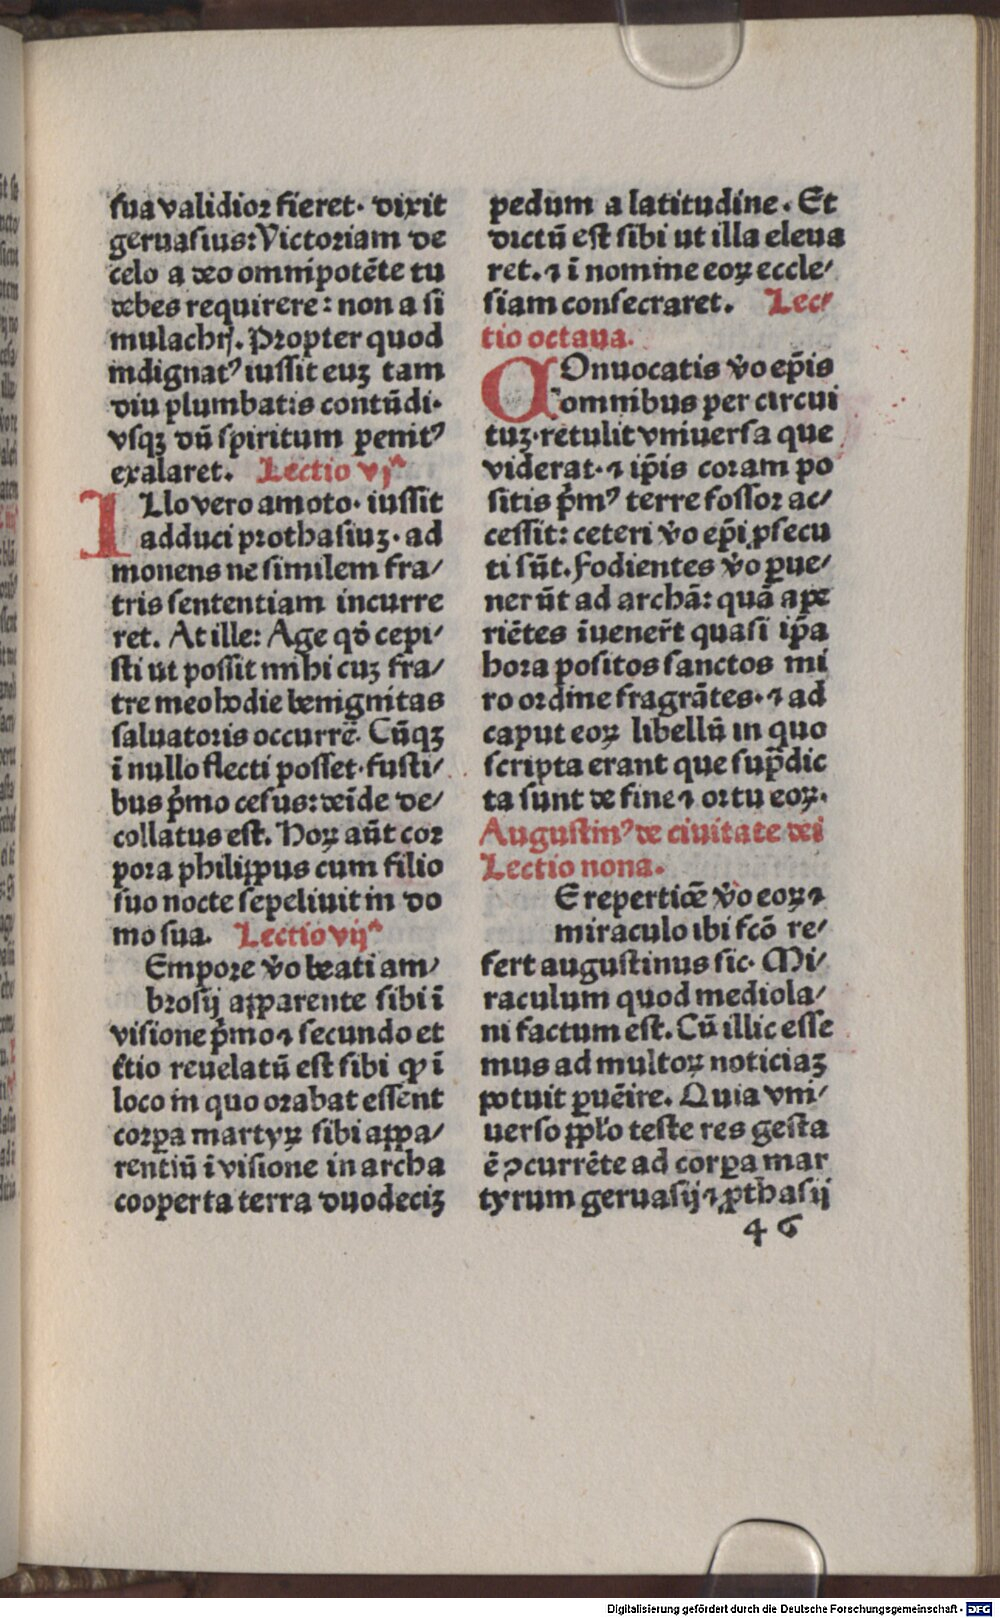 sua validior fieret. dixit
geruasius: Victoriam de
celo a deo omnipotēte tu
debes requirere: non a si
mulachrꝭ. Propter quod
indignatꝰ iussit euꝫ tam
diu plumbatis contūdi.
vsqꝫ dū spiritum penitꝰ
exalaret. Lectio vjᵃ
Illo vero amoto. iussit
adduci prothasiuꝫ. ad
monens ne similem fra/
tris sententiam incurre
ret. At ille: Age qō cepi/
sti ut possit mihi cuꝫ fra/
tre meo hodie benignitas
saluatoris occurrē. Cūqꝫ
ī nullo flecti posset. fusti/
bus p̄mo cesus: deīde de/
collatus est. Hoꝝ aūt cor
pora philippus cum filio
suo nocte sepeliuit in do
mo sua. Lectio vijᵃ
Empore v̄o beati am/
brosij apparente sibi ī
visione p̄mo ⁊ secundo et
t̄tio reuelatū est sibi ꝙ ī
loco in quo orabat essent
corꝑa martyꝝ sibi appa/
rentiū ī visione in archa
cooperta terra duodeciꝫ
pedum a latitudine. Et
dictū est sibi ut illa eleua
ret. ⁊ ī nomine eoꝝ eccle/
siam consecraret. Lec/
tio octaua.
COnuocatis v̄o ep̄is
omnibus per circui
tuꝫ. retulit vniuersa que
viderat. ⁊ ip̄is coram po
sitis p̄mꝰ terre fossor ac/
cessit: ceteri v̄o ep̄i ꝓsecu
ti sūt. Fodientes v̄o ꝑue/
nerūt ad archā: quā ape
riētes īuener̄t quasi ip̄a
hora positos sanctos mi
ro ordine fragrātes. ⁊ ad
caput eoꝝ libellū in quo
scripta erant que sup̄dic
ta sunt de fine ⁊ ortu eoꝝ.
Augustinꝰ de ciuitate dei
Lectio nona.
E repertiōe v̄o eoꝝ ⁊
miraculo ibi fcō re/
fert augustinus sic. Mi/
raculum quod mediola/
ni factum est. Cū illic esse
mus ad multoꝝ noticiaꝫ
potuit ꝑuēire. Quia vni/
uerso ppl̄o teste res gesta
ē ꝯcurrēte ad corꝑa mar
tyrum geruasij ⁊ ꝓthasij
46
Digitalisierung gefördert durch die Deutsche Forschungsgemeinschaft - DFG